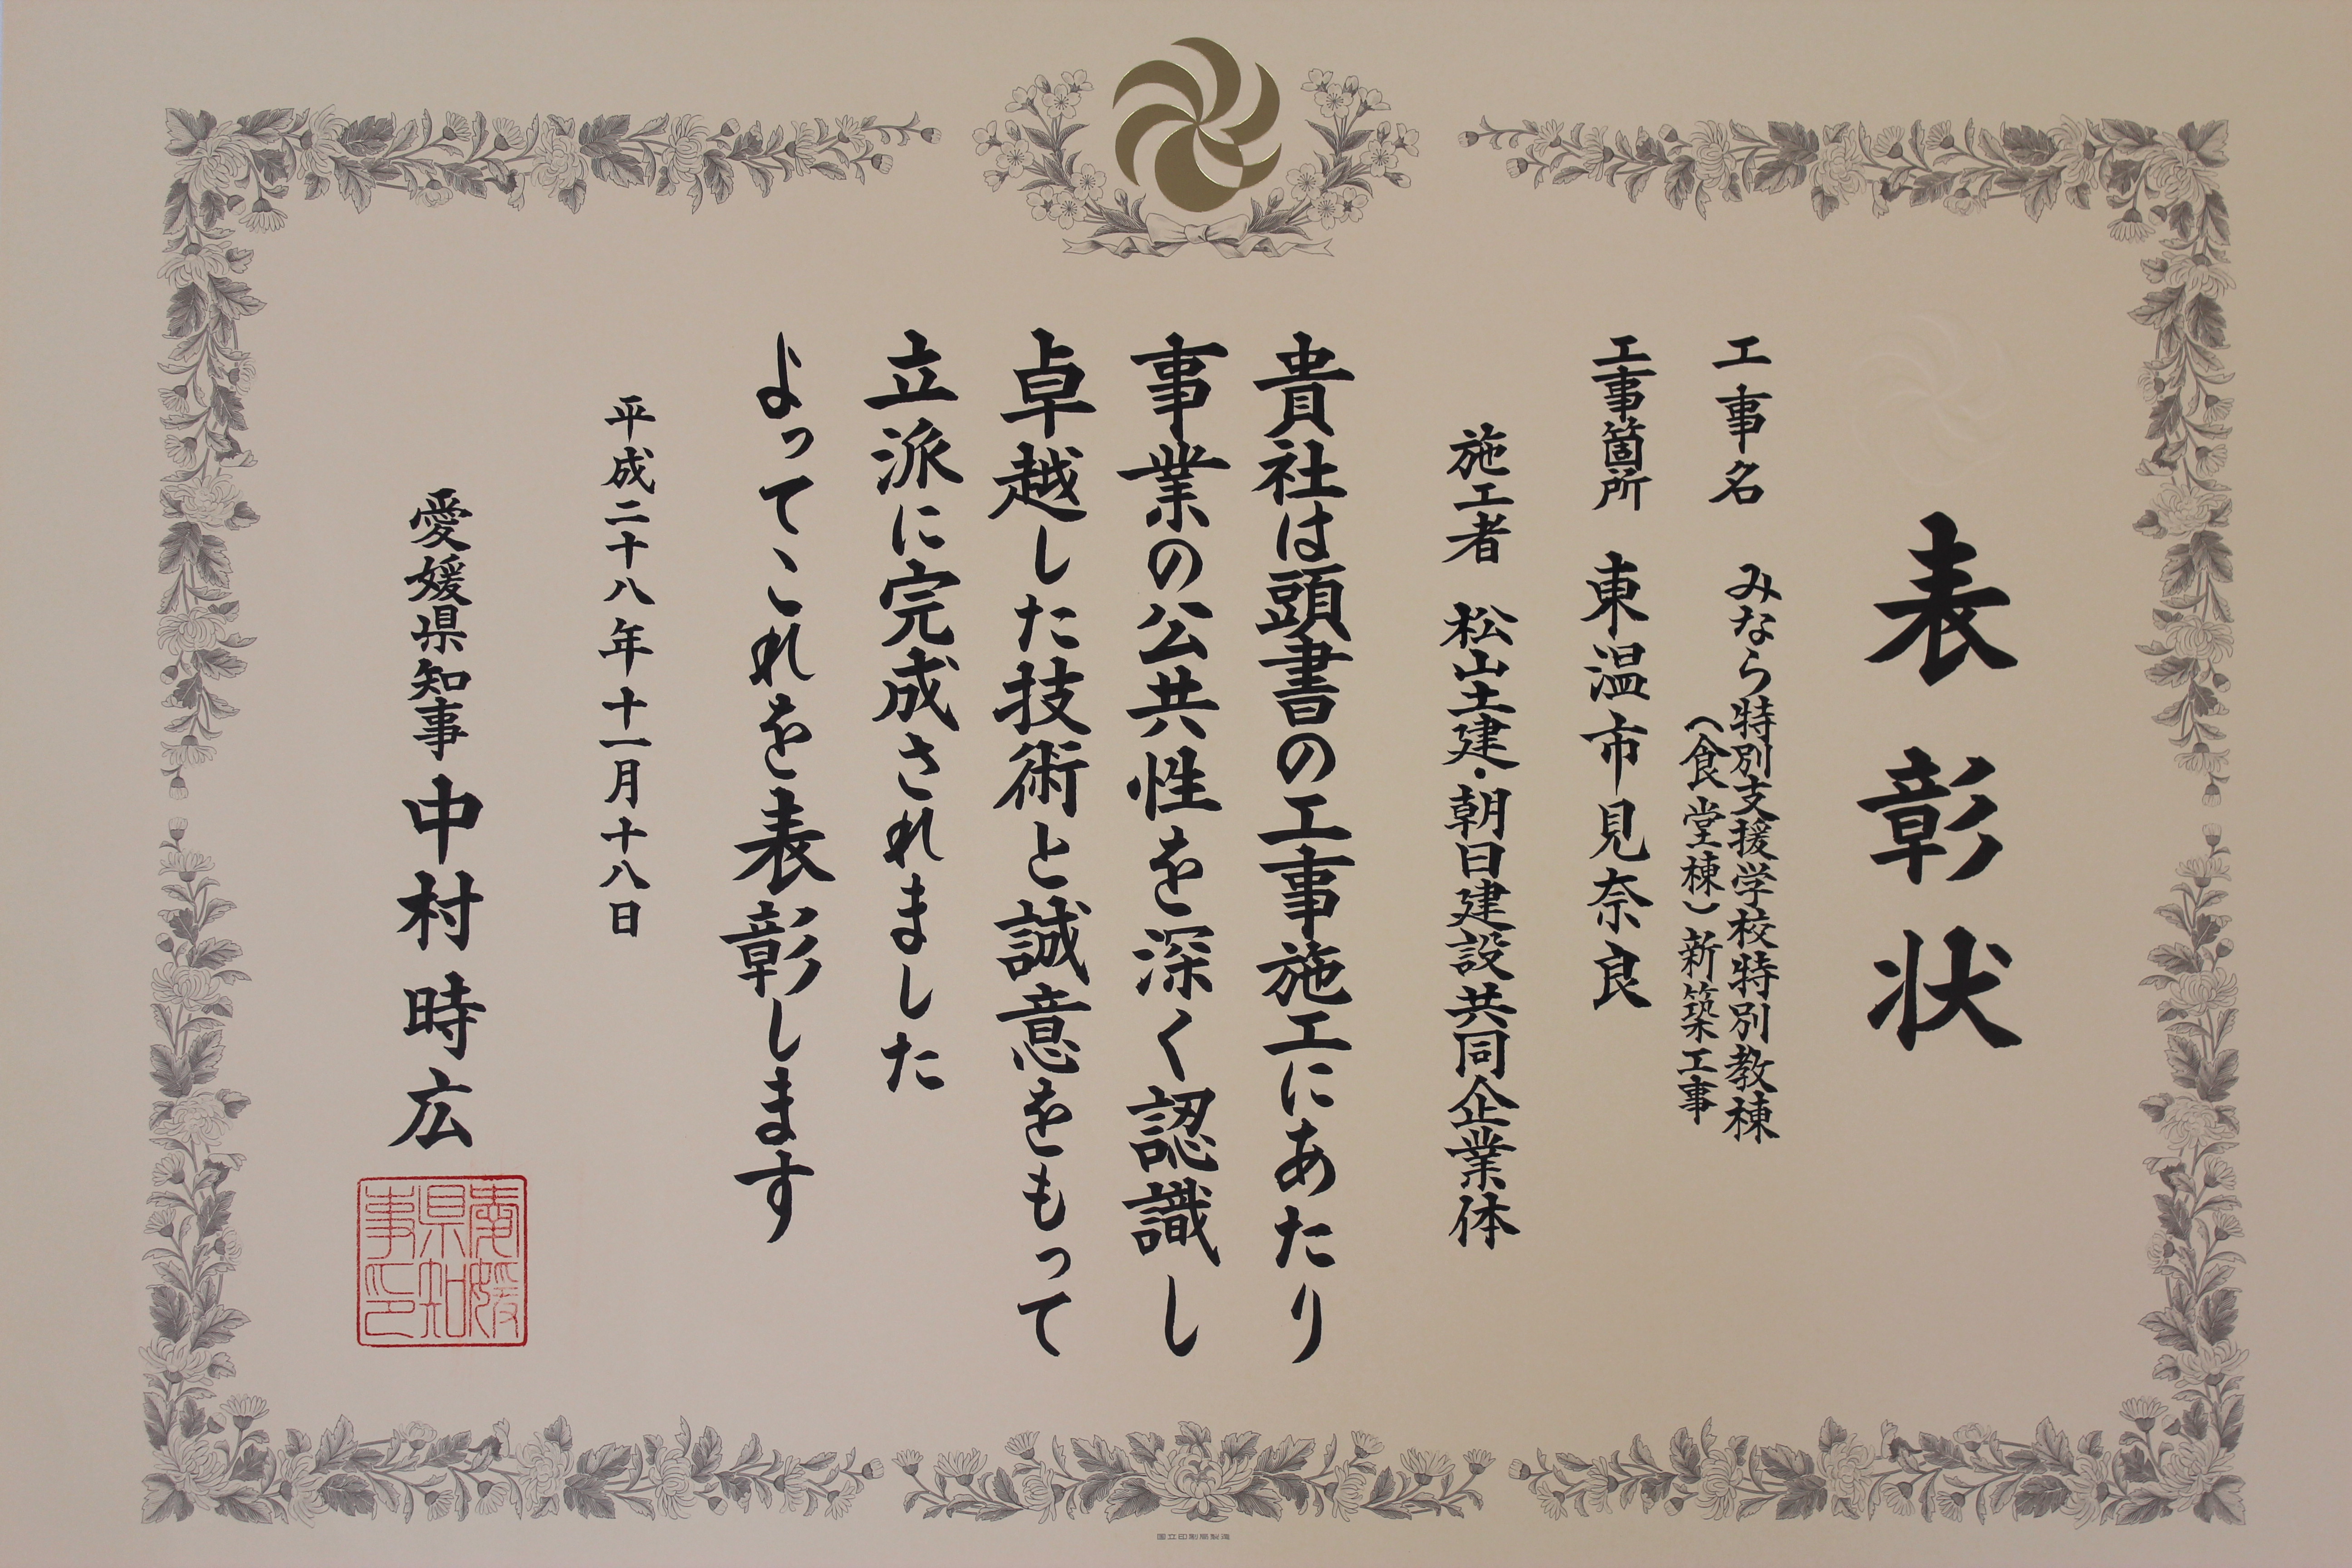 表彰状
工事名 みなら特別支援学校特別教棟
(食堂棟)新築工事
工事箇所 東温市見奈良
施工者 松山土建・朝日建設共同企業体
貴社は頭書の工事施工にあたり
事業の公共性を深く認識し
卓越した技術と誠意をもって
立派に完成されました
よってこれを表彰します
平成二十八年十一月十八日
愛媛県知事 中村時広
愛媛
県知
事印
国立印刷局製造